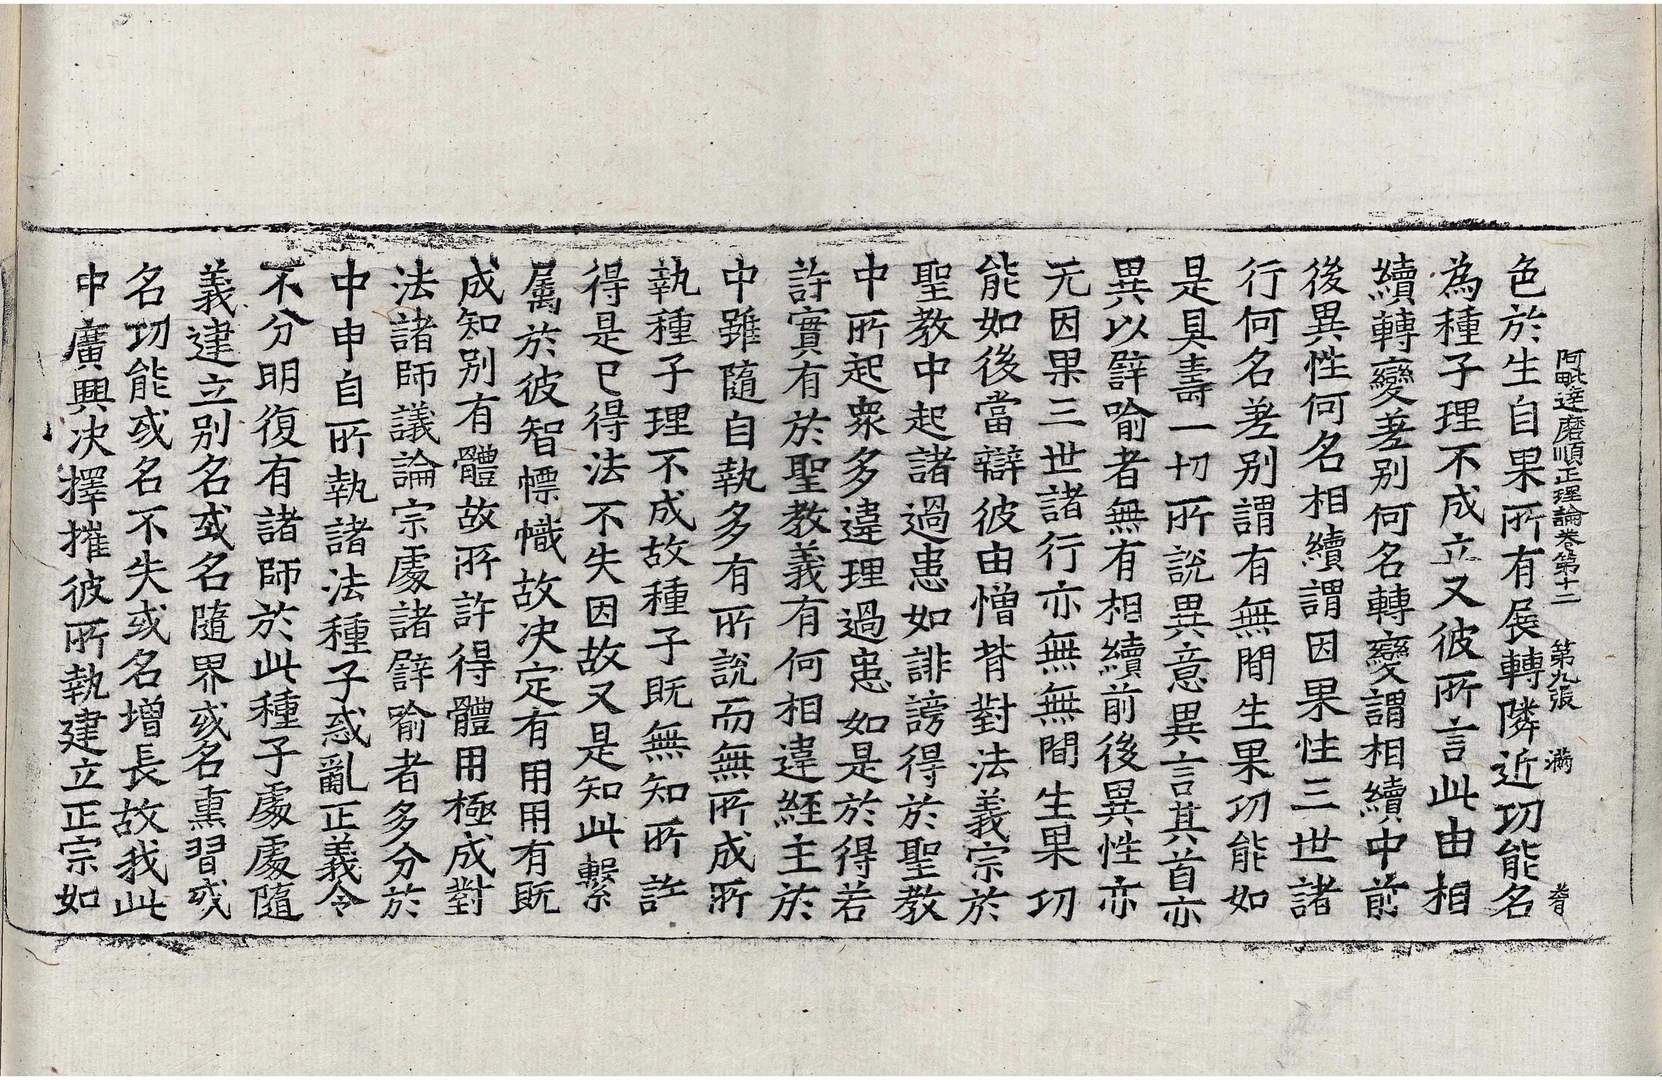 阿毗達磨順正理論卷第十二 第九張 滿
色於生自果所有展轉隣近功能名
為種子理不成立又彼所言此由相
續轉變差别何名轉變謂相續中前
後異性何名相續謂因果性三世諸
行何名差别謂有無間生果功能如
是具壽一切所說異意異言其首亦
異以譬喻者無有相續前後異性亦
无因果三世諸行亦無無間生果功
能如後當辯彼由憎背對法義宗於
聖教中起諸過患如誹謗得於聖教
中所起衆多違理過患如是於得若
許實有於聖教義有何相違經主於
中雖隨自執多有所說而無所成所
執種子理不成故種子既無知所許
得是已得法不失因故又是知此繫
屬於彼智幖幟故决定有用用有既
成知别有體故所許得體用極成對
法諸師議論宗處諸譬喻者多分於
中申自所執諸法種子惑亂正義令
不分明復有諸師於此種子處處隨
義建立别名或名隨界或名熏習或
名功能或名不失或名增長故我此
中廣興决擇摧彼所執建立正宗如